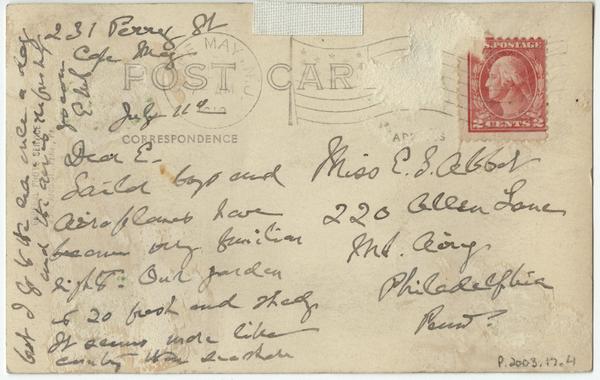 231 Perry St
Cape May
MAY, N.J.
POST CARD
July 11th
CORRESPONDENCE
Dear E.
Sailor boys and
aeroplanes have
become very familiar
sights. Our garden
is so fresh and shady
It seems more like
country than seashore
but I go to the sea once a day
and the air is
Miss E. S. Abbot
220 Allen Lane
Mt. Airy
Philadelphia
Penn.
U.S. POSTAGE
2 CENTS 2
P.2003.17.4